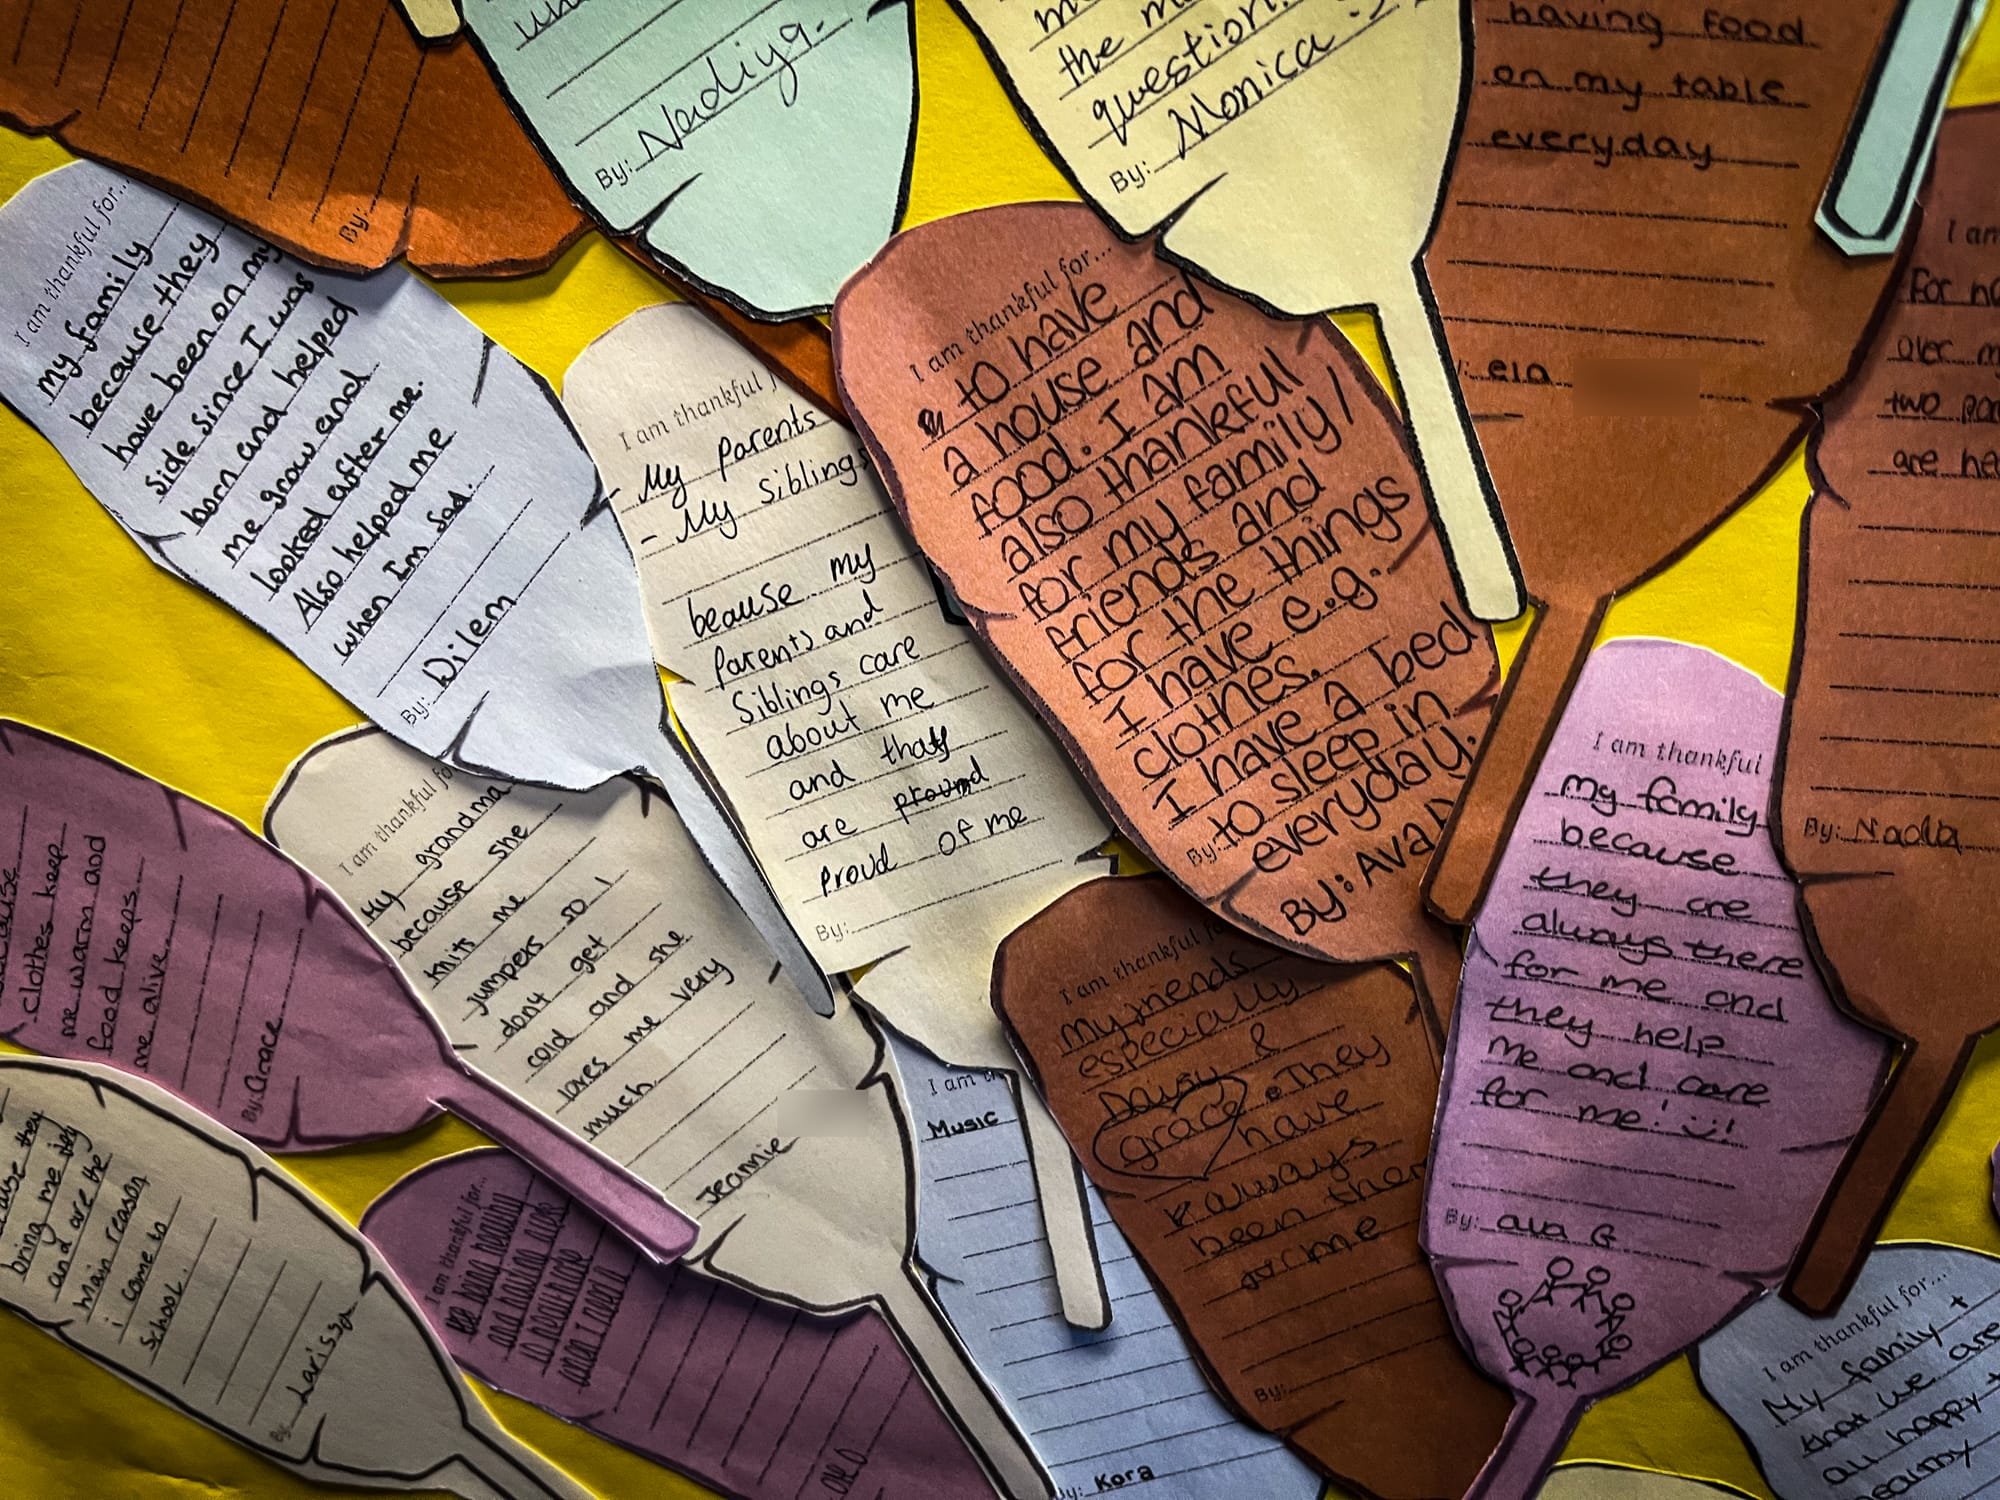 By:
Nadiya.
the m
question.
Monica :)
By:
having food
on my table
everyday
ela
I am thankful for...
my family
because they
have been on my
side since I was
born and helped
me grow and
looked after me.
Also helped me
when Im sad.
By: Dilem
I am thankful
My parents
- My siblings
beause my
Parents and
Siblings care
about me
and that
are
proud of me
By:
I am thankful for...
to have
a house and
food. I am
also thankful
for my family/
friends and
for the things
I have e.g.
clothes.
I have a bed
By: to sleep in
everyday.
By: Ava
I am
over
two
are
By: Nadia
clothes keep
me warm and
food keeps
me alive.
By: Grace
I am thankful for
My grandma
because she
knits me
jumpers so I
dont get
cold and she
loves me very
much.
Jeannie
I am thankful
my family
because
they are
always there
for me and
they help
me and care
for me! :)!
By: ava G
I am thankful
my friends
especially
&
Daisy
grace. They
have
always
been ther
for me
By:
they
bring me joy
and are the
main reason
i come to
school.
By: Larissa
I am thankful for...
being healthy
and having
when I need
I am
Music
By: Kora
I am thankful for...
My family +
that we are
all happy +
healthy